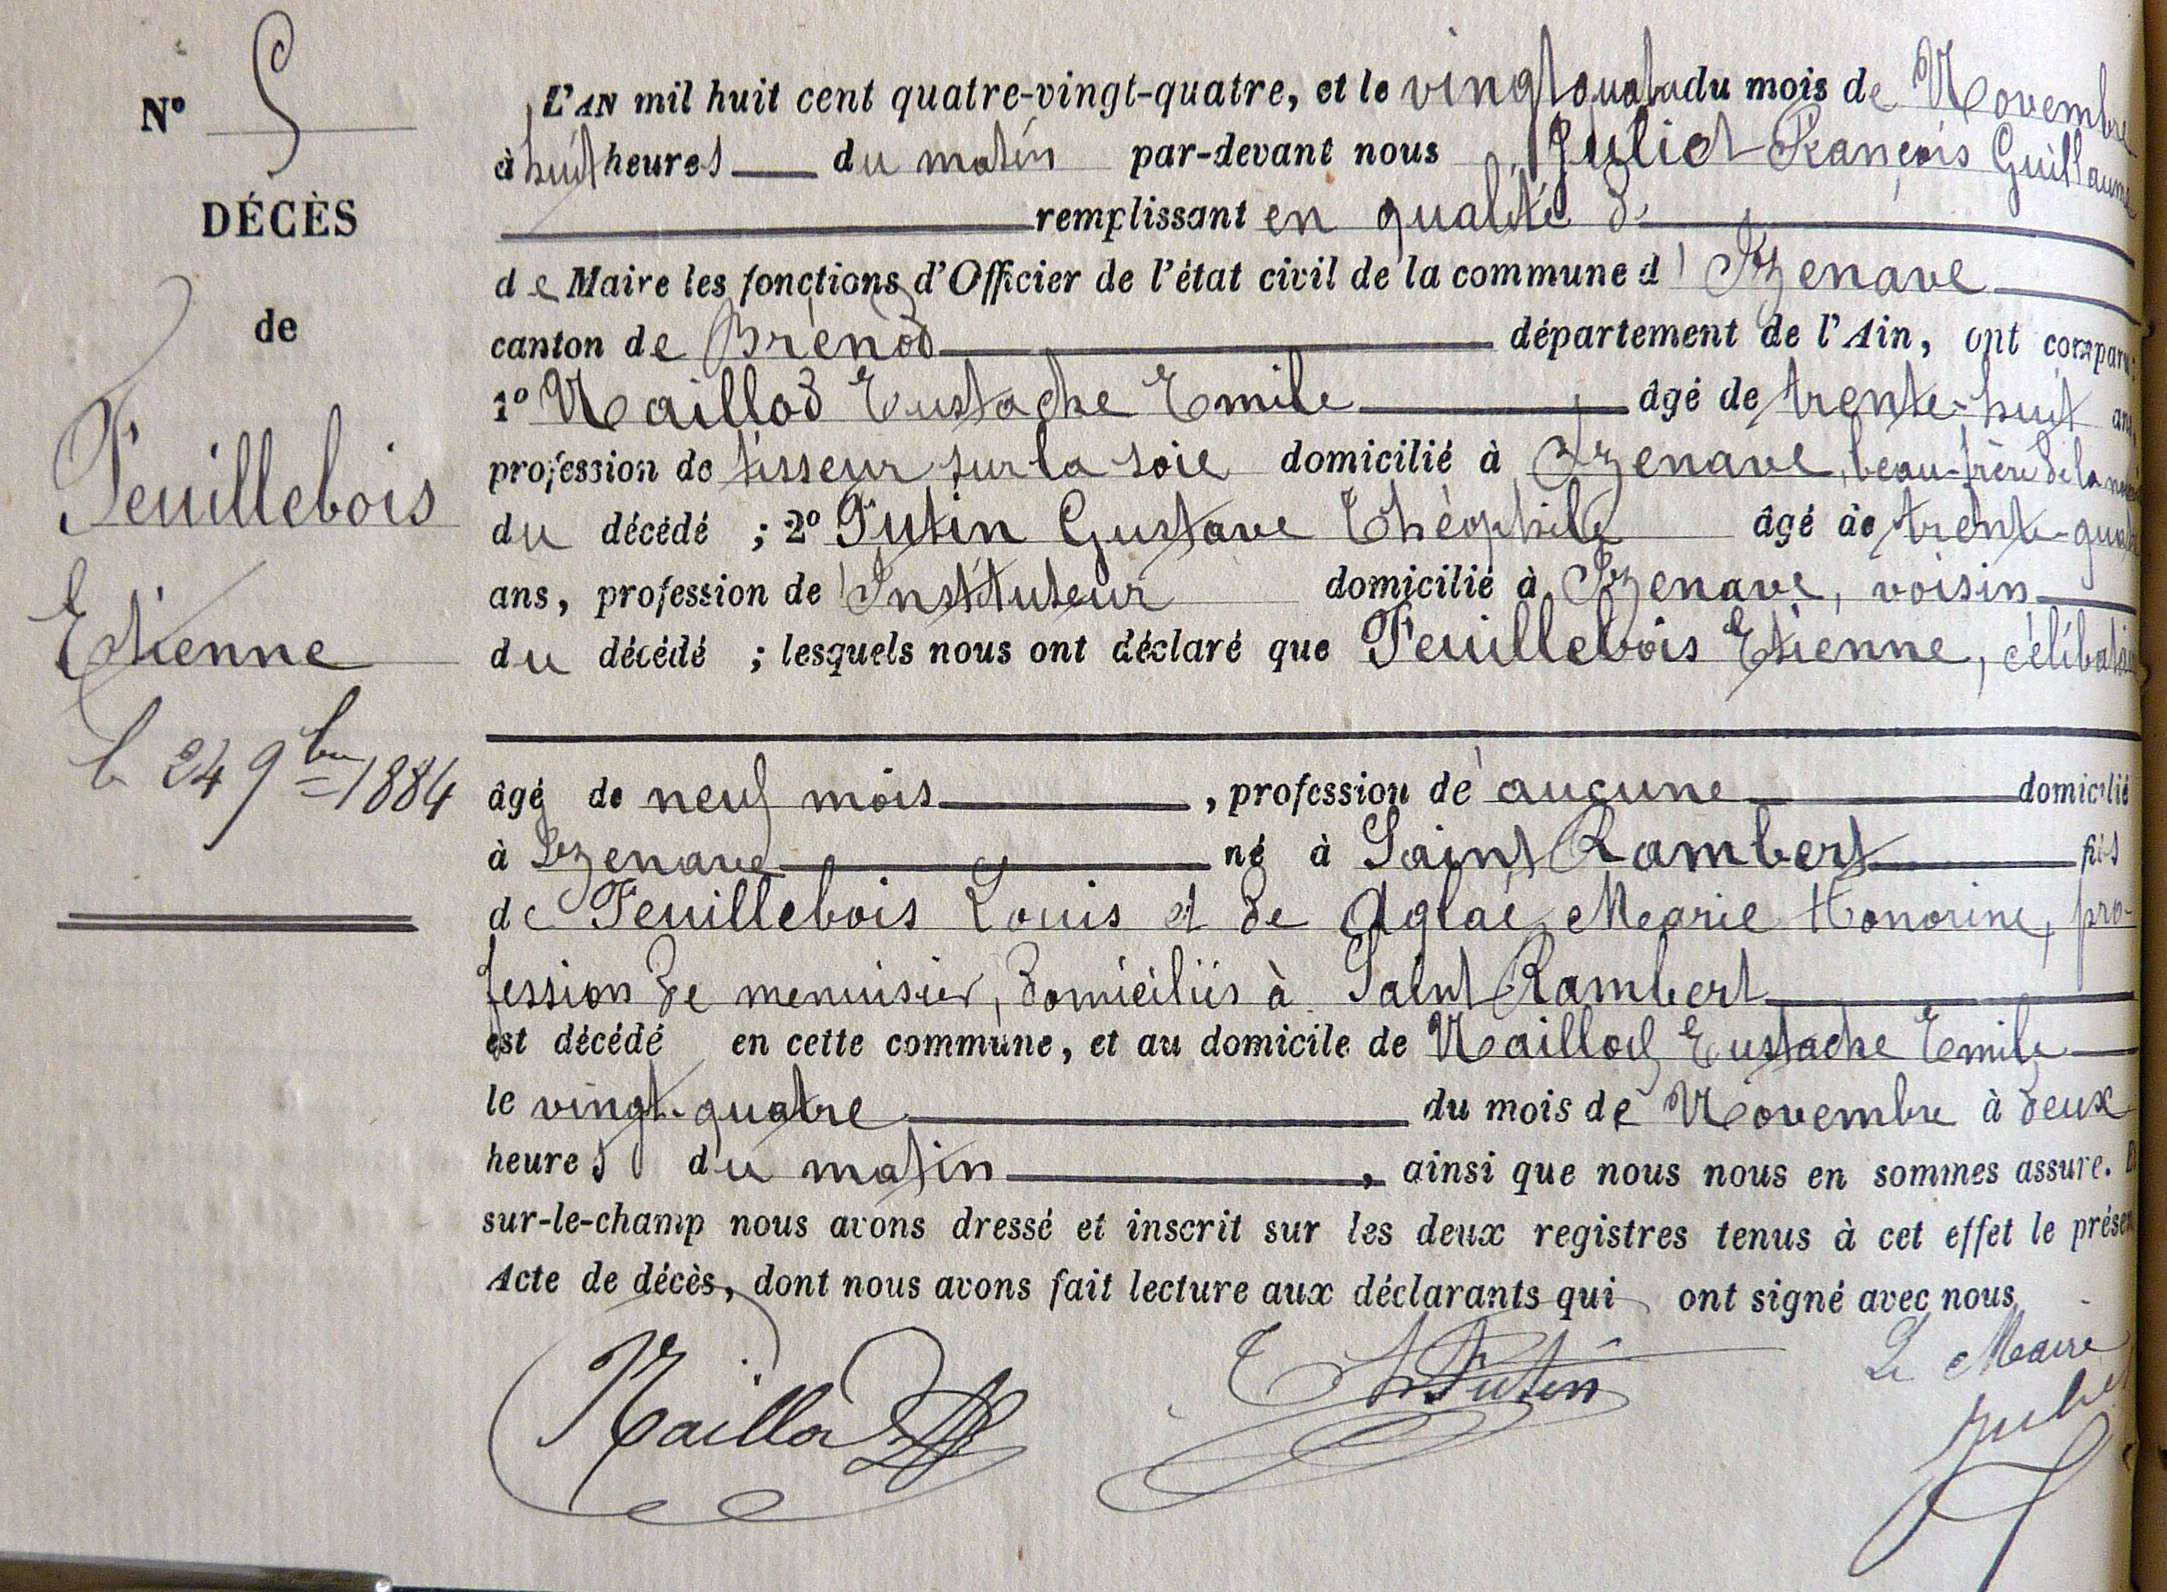 N° 5
DÉCÈS
de
Feuillebois
Etienne
le 24 9bre 1884
L'AN mil huit cent quatre-vingt-quatre, et le vingt quatre du mois de Novembre
à huit heures du matin par-devant nous Juliet François Guillaume
remplissant en qualité d
de Maire les fonctions d'Officier de l'état civil de la commune d'Izenave
canton de Brénod département de l'Ain, ont comparu:
1° Naillod Eustache Emile âgé de trente-huit ans,
profession de tisseur sur la soie domicilié à Izenave, beau-frère de la
du décédé ; 2° Futin Gustave Théophile âgé de trente-quatre
ans, profession de Instituteur domicilié à Izenave, voisin
du décédé ; lesquels nous ont déclaré que Feuillebois Etienne, célibataire
âgé de neuf mois, profession de aucune domicilié
à Izenave né à Saint Rambert fils
de Feuillebois Louis et de Aglaé Marie Honorine, pro-
fession de menuisier, domiciliés à Saint Rambert
est décédé en cette commune, et au domicile de Naillod Eustache Emile
le vingt-quatre du mois de Novembre à deux
heures du matin, ainsi que nous nous en sommes assuré. Et
sur-le-champ nous avons dressé et inscrit sur les deux registres tenus à cet effet le présent
Acte de décès, dont nous avons fait lecture aux déclarants qui ont signé avec nous
Le Maire
Naillod Futin Juliet